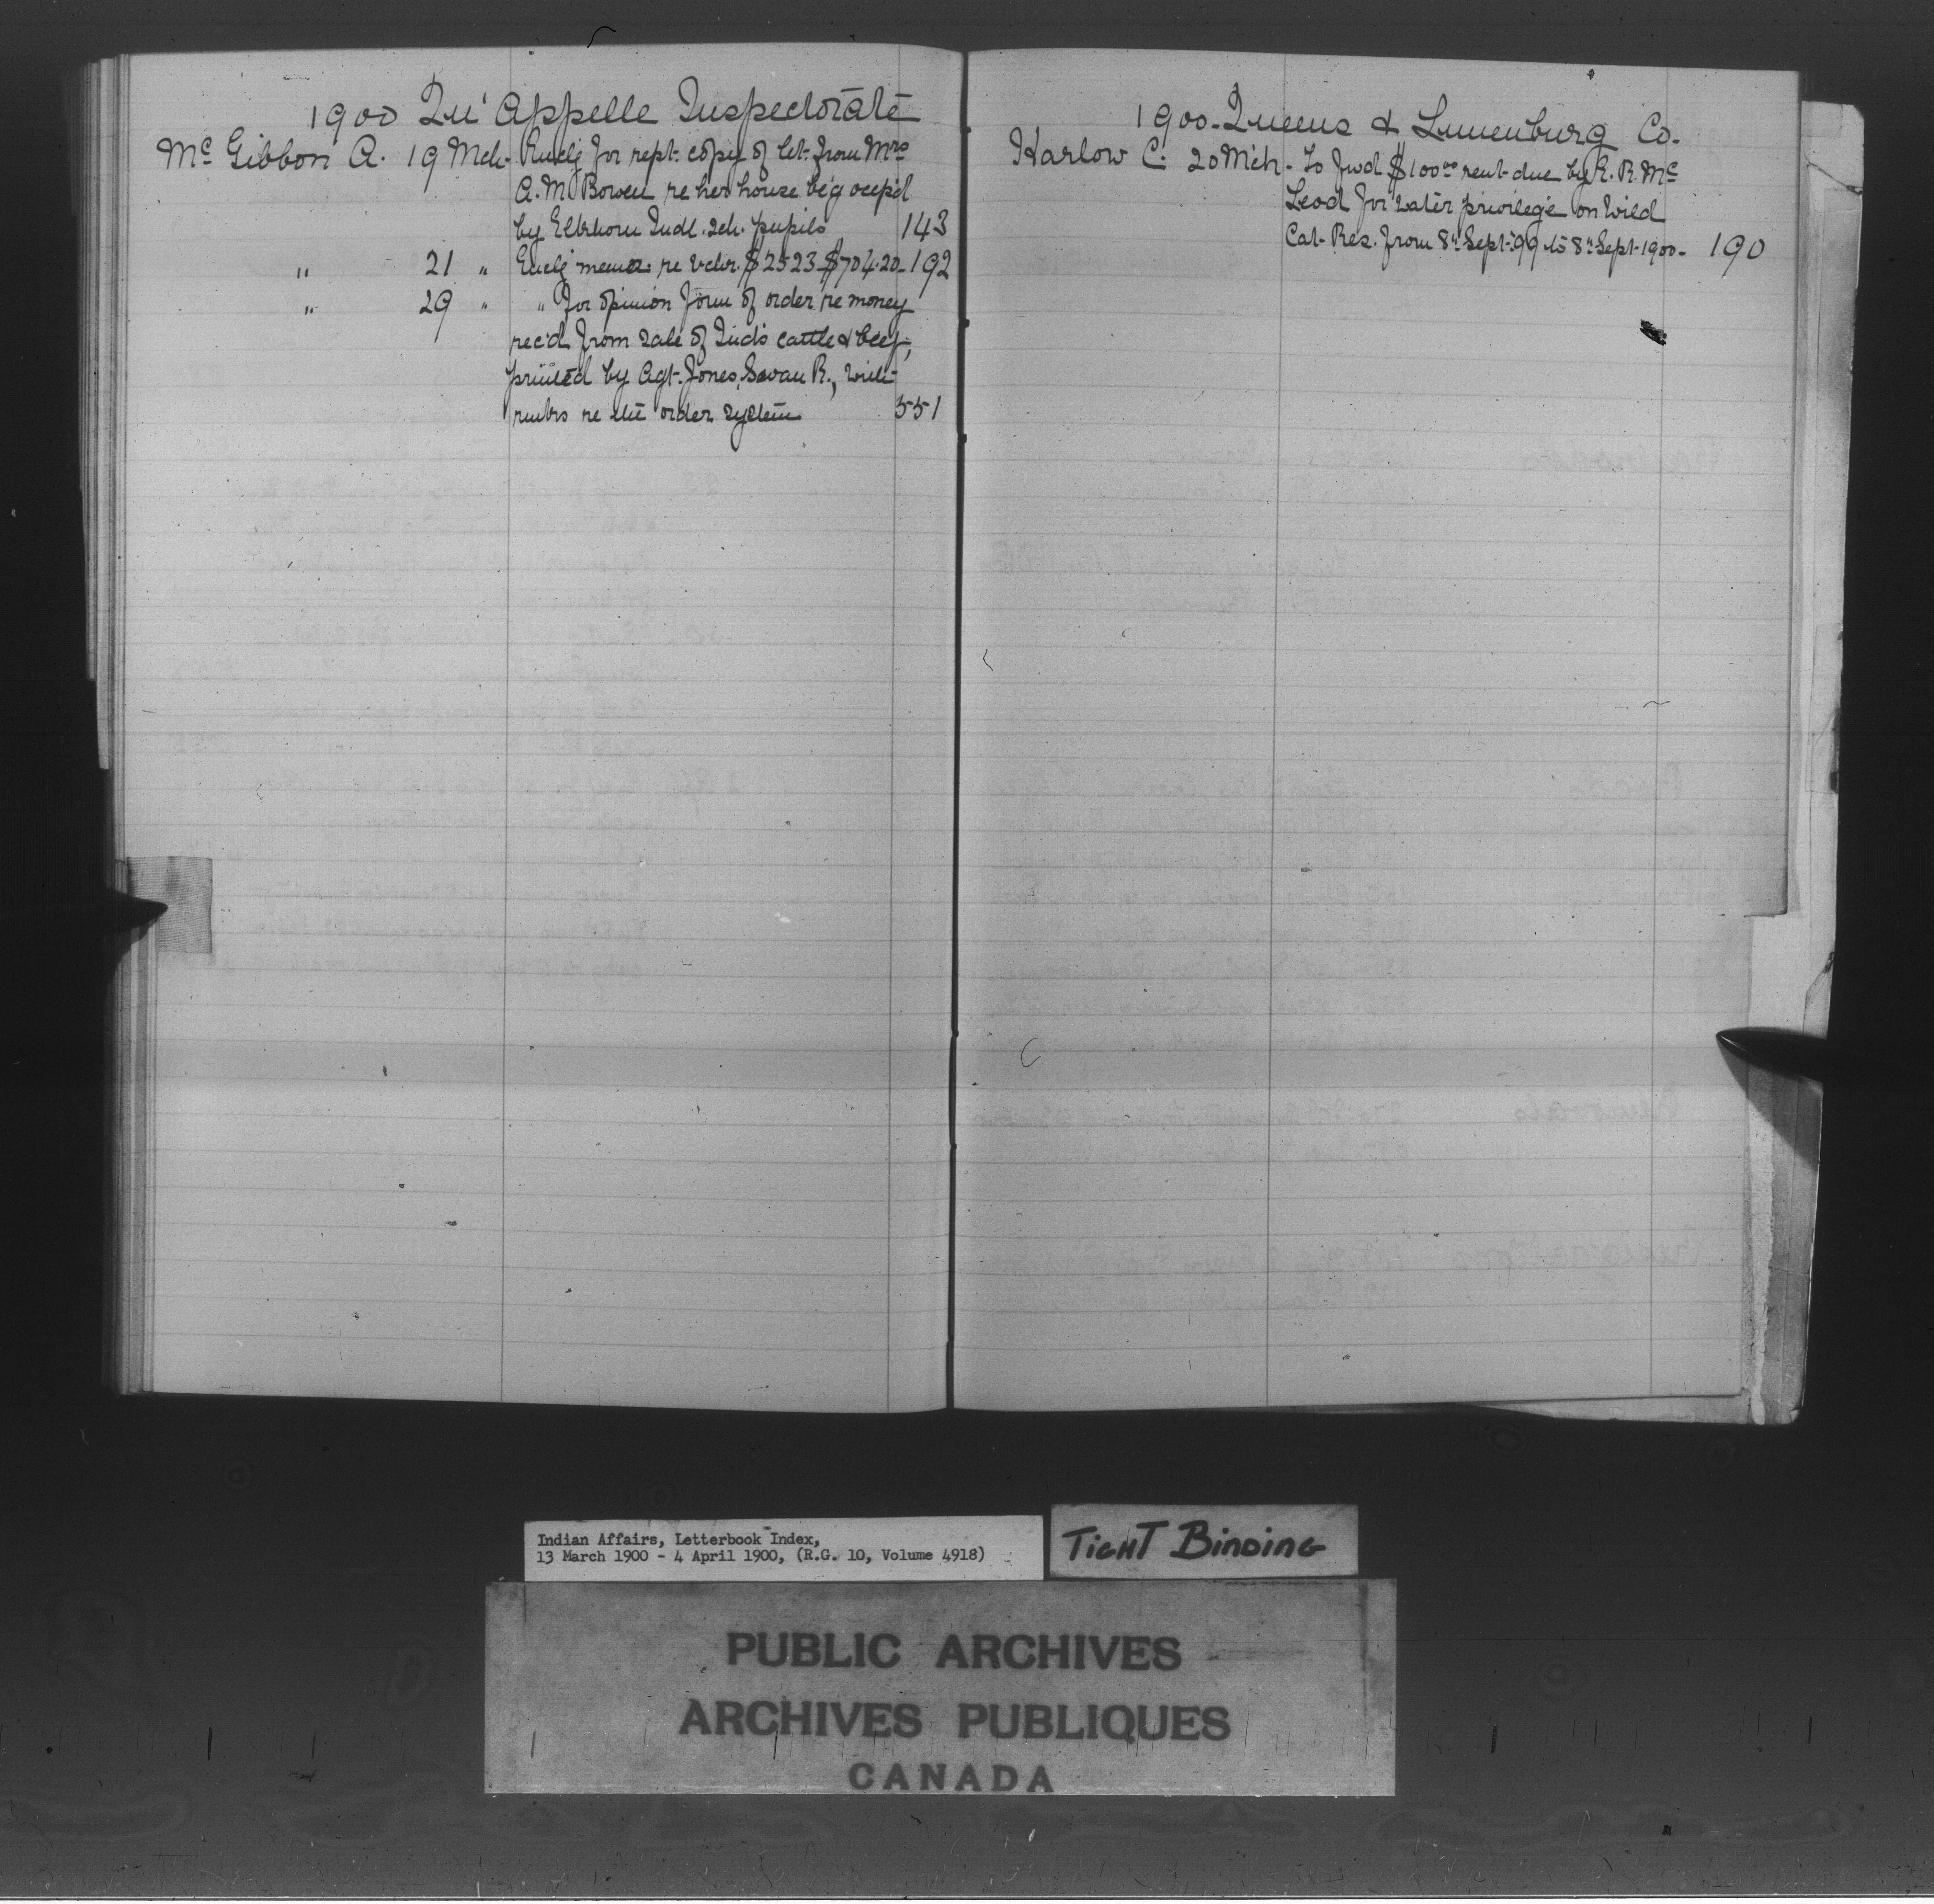 1900 Qu'Appelle Inspectorate
McGibbon A. 19 Mch. Enclg for rept. copy of let. from Mrs
A. M. Bowen re her house b'g occp'd
by Elkhorn Indl. Sch. pupils 143
" 21 " Enclg memo. re Vchr. $2523 $704.20 - 192
" 29 " " for opinion form of order re money
rec'd from sale of Ind's cattle & beef,
printed by Agt. Jones, Swan R., with
rmks re the order system 551
1900 - Queens & Lunenburg Co.
Harlow C. 20 Mch. To fwd $100 00 rent due by R. R. Mc
Leod for water privilege on Wild
Cat Res. from 8th Sept. '99 to 8th Sept. 1900 - 190
Indian Affairs, Letterbook Index,
13 March 1900 - 4 April 1900, (R.G. 10, Volume 4918)
TIGHT BINDING
PUBLIC ARCHIVES
ARCHIVES PUBLIQUES
CANADA